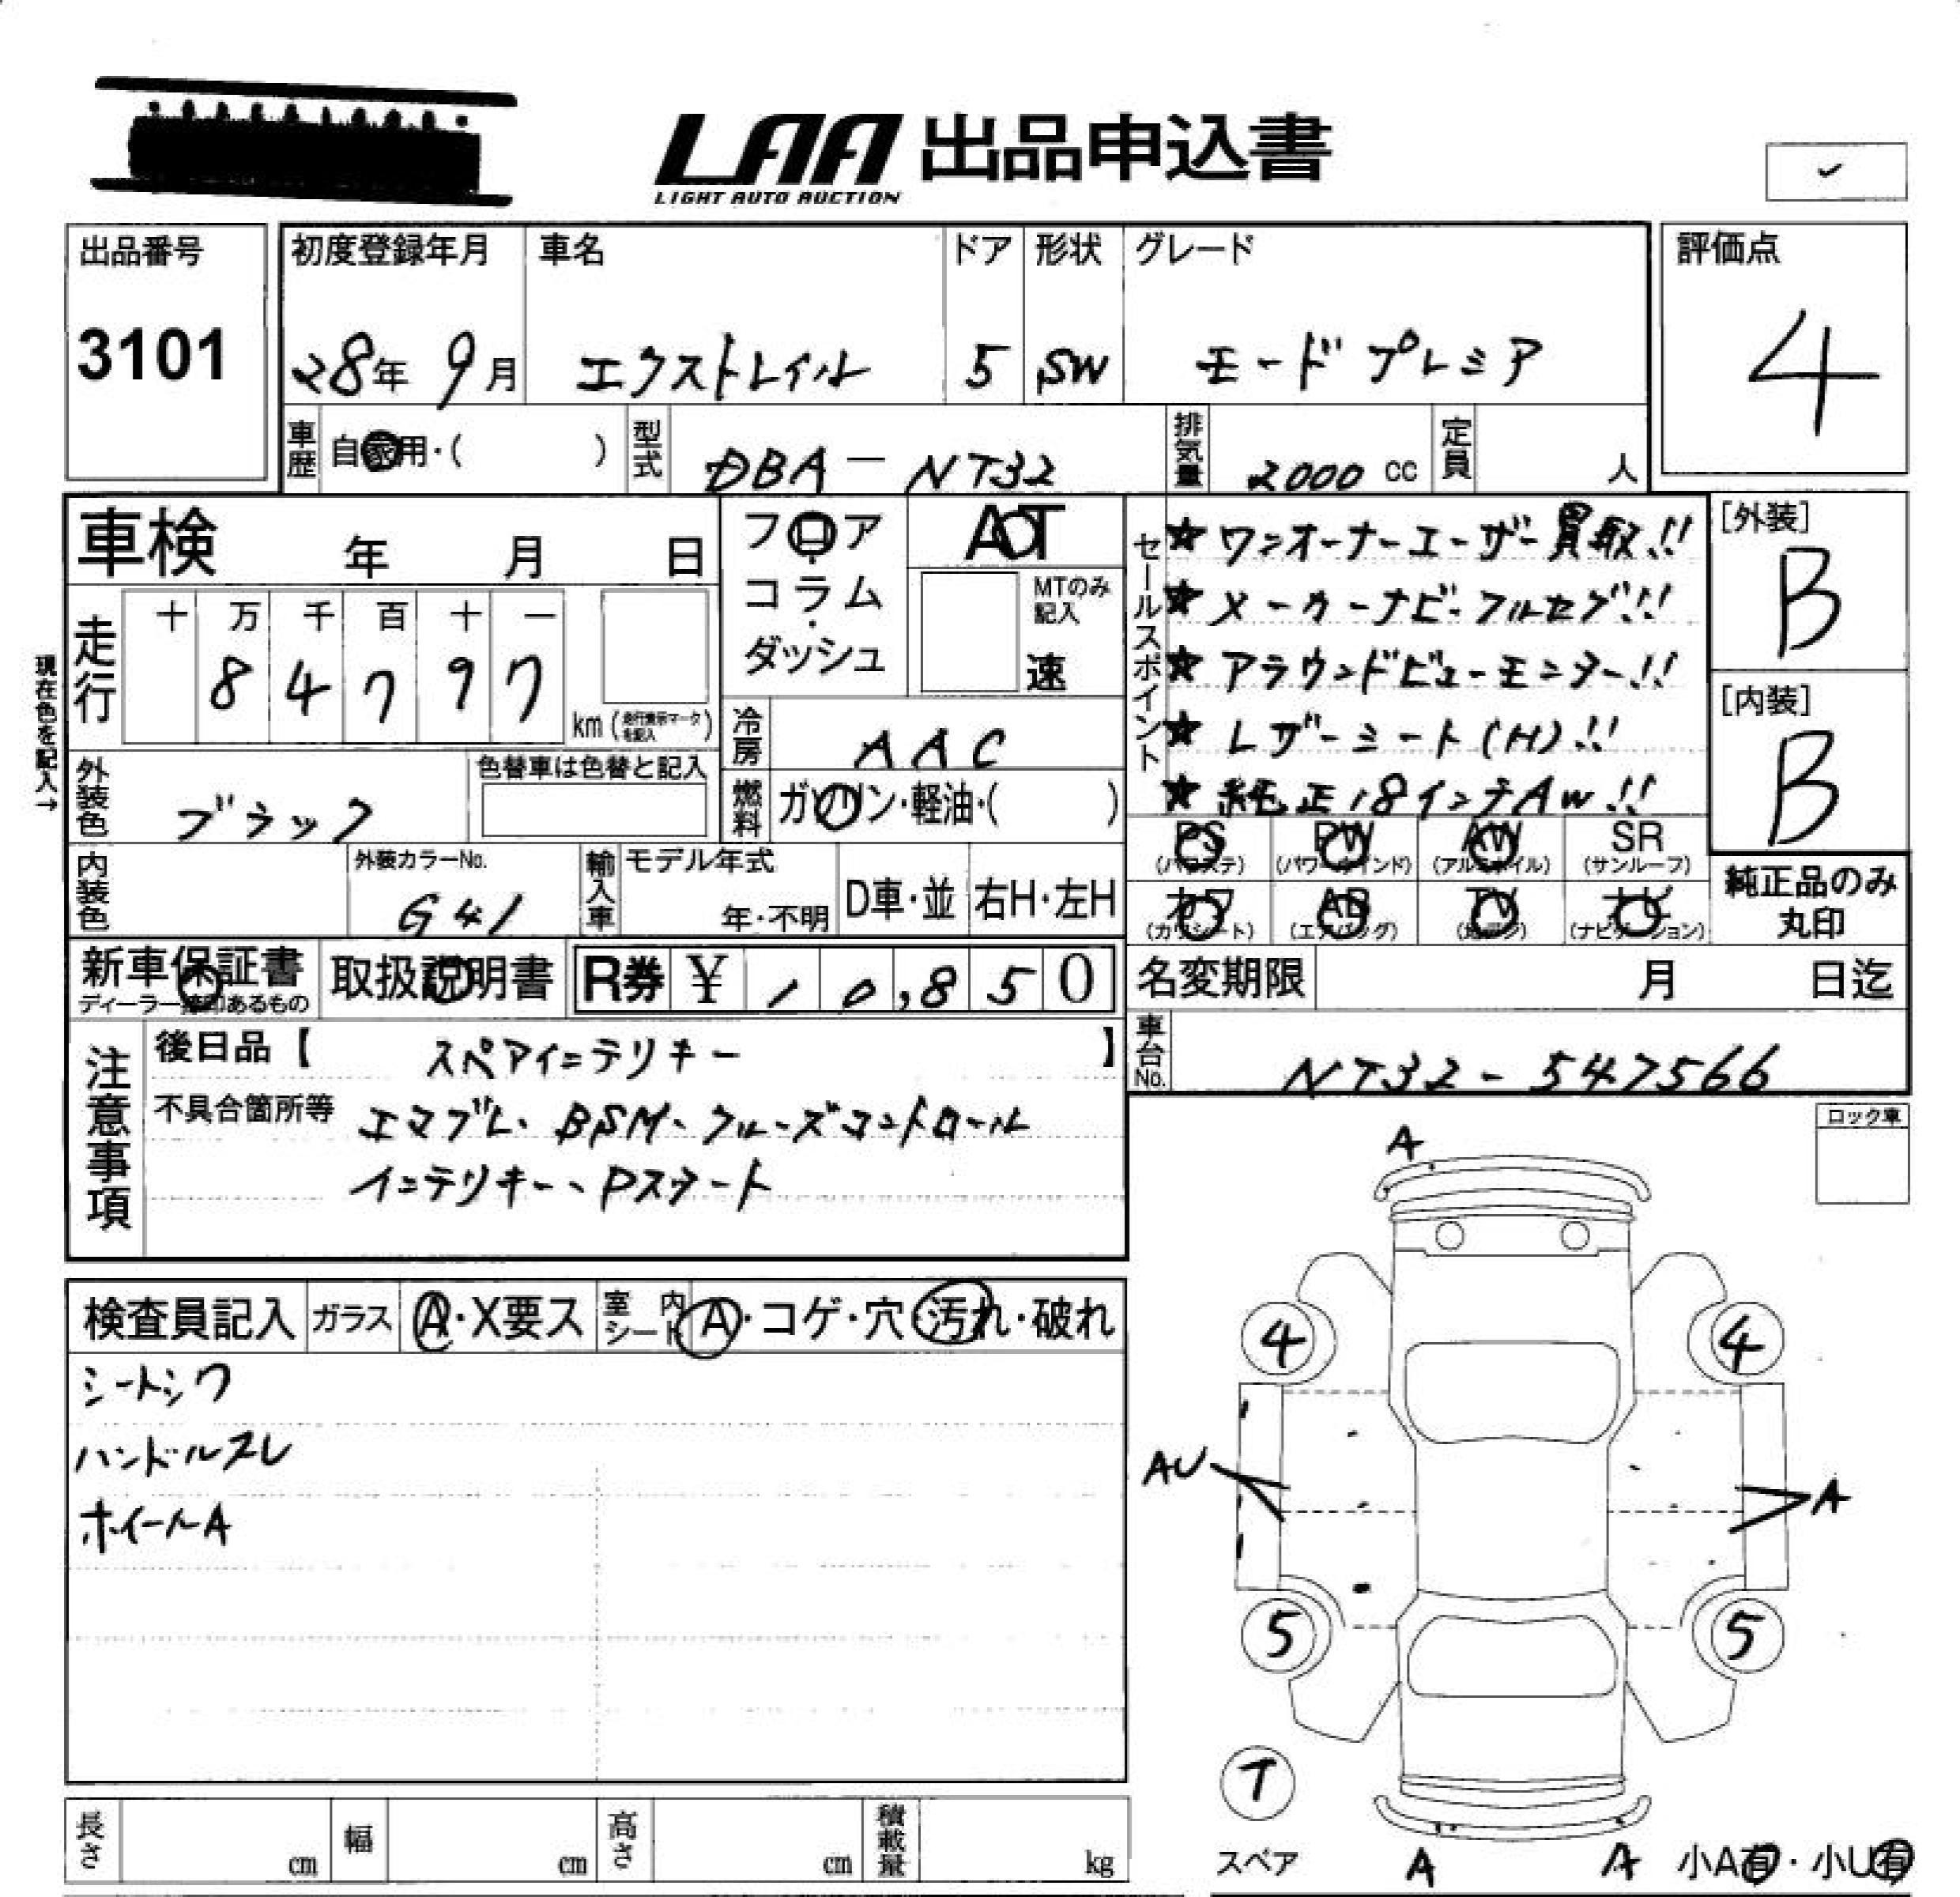 LAA 出品申込書
LIGHT AUTO AUCTION
出品番号
3101
初度登録年月
28年 9月
車名
エクストレイル
ドア
5
形状
SW
グレード
モード プレミア
評価点
4
車歴
自家用・( )
型式
DBA-NT32
排気量
2000 cc
定員
人
車検 年 月 日
フロア・コラム・ダッシュ
AT
MTのみ記入
速
セールスポイント
☆ワンオーナーユーザー買取!!
☆メーカーナビ・フルセグ!!
☆アラウンドビューモニター!!
☆レザーシート(H)!!
☆純正18インチAW!!
[外装]
B
[内装]
B
現在色を記入→
走行
十 万 千 百 十 一
8 4 7 9 7
km (走行表示マークを記入)
冷房
AAC
外装色
ブラック
色替車は色替と記入
燃料
ガソリン・軽油・( )
PS (パワステ)
PW (パワーウインド)
AW (アルミホイル)
SR (サンルーフ)
カワ (カワシート)
AB (エアバッグ)
TV (地デジ)
ナビ (ナビゲーション)
純正品のみ丸印
内装色
外装カラーNo.
G41
輸入車
モデル年式
年・不明
D車・並
右H・左H
新車保証書
ディーラー捺印あるもの
取扱説明書
R券 ¥ 10,850
名変期限 月 日迄
車台No.
NT32-547566
注意事項
後日品【 スペアインテリキー 】
不具合箇所等 エマブレ、BSM、クルーズコントロール
インテリキー、Pスタート
ロック車
検査員記入
ガラス
A・X要ス
室内シート
A・コゲ・穴・汚れ・破れ
シートシワ
ハンドルスレ
ホイールA
A
4
4
AU
A
5
5
T
スペア
A
A
小A有・小U有
長さ cm
幅 cm
高さ cm
積載量 kg